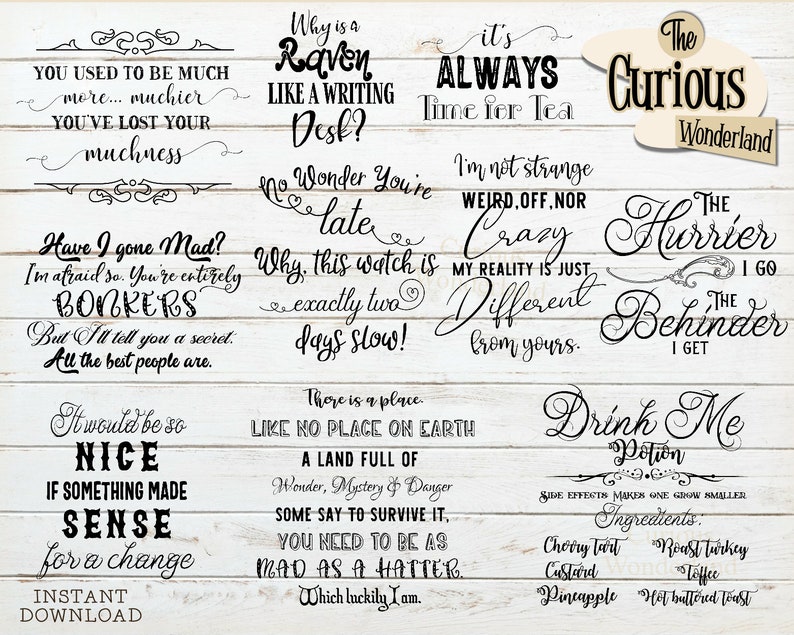 YOU USED TO BE MUCH
more... muchier
YOU'VE LOST YOUR
muchness
Why is a
Raven
LIKE A WRITING
Desk?
it's
ALWAYS
Time for Tea
The
Curious
Wonderland
No Wonder You're
late
Why, this watch is
exactly two
days slow!
I'm not strange
WEIRD, OFF, NOR
Crazy
MY REALITY IS JUST
Different
from yours.
THE
Hurrier
I GO
THE
Behinder
I GET
Have I gone Mad?
I'm afraid so. You're entirely
BONKERS
But I'll tell you a secret.
All the best people are.
It would be so
NICE
IF SOMETHING MADE
SENSE
for a change
There is a place.
LIKE NO PLACE ON EARTH
A LAND FULL OF
Wonder, Mystery & Danger
SOME SAY TO SURVIVE IT,
YOU NEED TO BE AS
MAD AS A HATTER.
Which luckily I am.
Drink Me
Potion
Side effects Makes one grow smaller
Ingredients:
Cherry tart
Roast turkey
Custard
Toffee
Pineapple
Hot buttered toast
INSTANT
DOWNLOAD